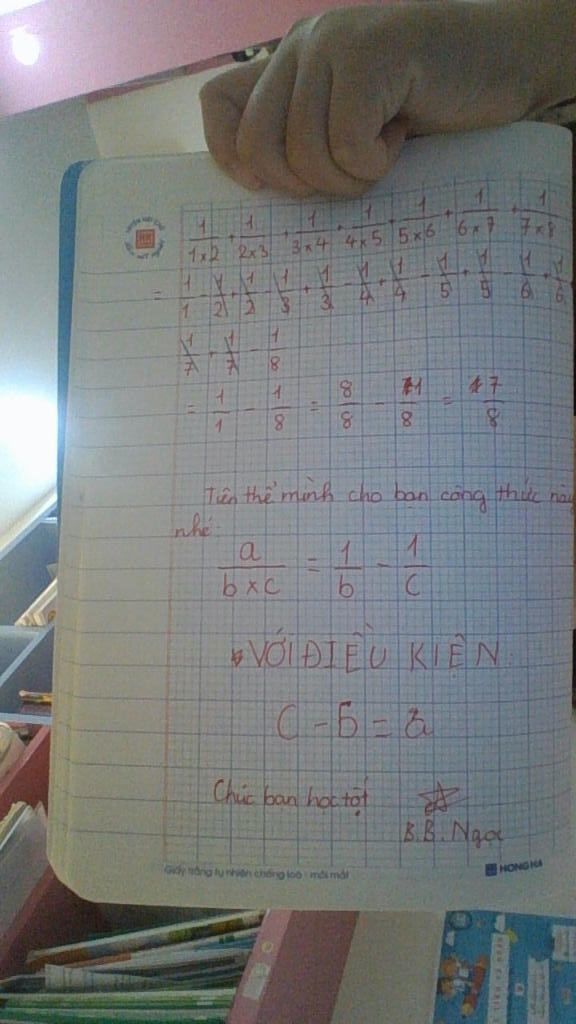 1/1×2 + 1/2×3 + 1/3×4 + 1/4×5 + 1/5×6 + 1/6×7 + 1/7×8
= 1/1 - 1/2 + 1/2 - 1/3 + 1/3 - 1/4 + 1/4 - 1/5 + 1/5 - 1/6 + 1/6
1/7 + 1/7 - 1/8
= 1/1 - 1/8 = 8/8 - 1/8 = 7/8
Tiện thể mình cho bạn công thức này
nhé:
a/b×c = 1/b - 1/c
VỚI ĐIỀU KIỆN
c - b = a
Chúc bạn học tốt
B.B. Ngọc
Giấy trắng tự nhiên chống loá - mỏi mắt
HONG HA